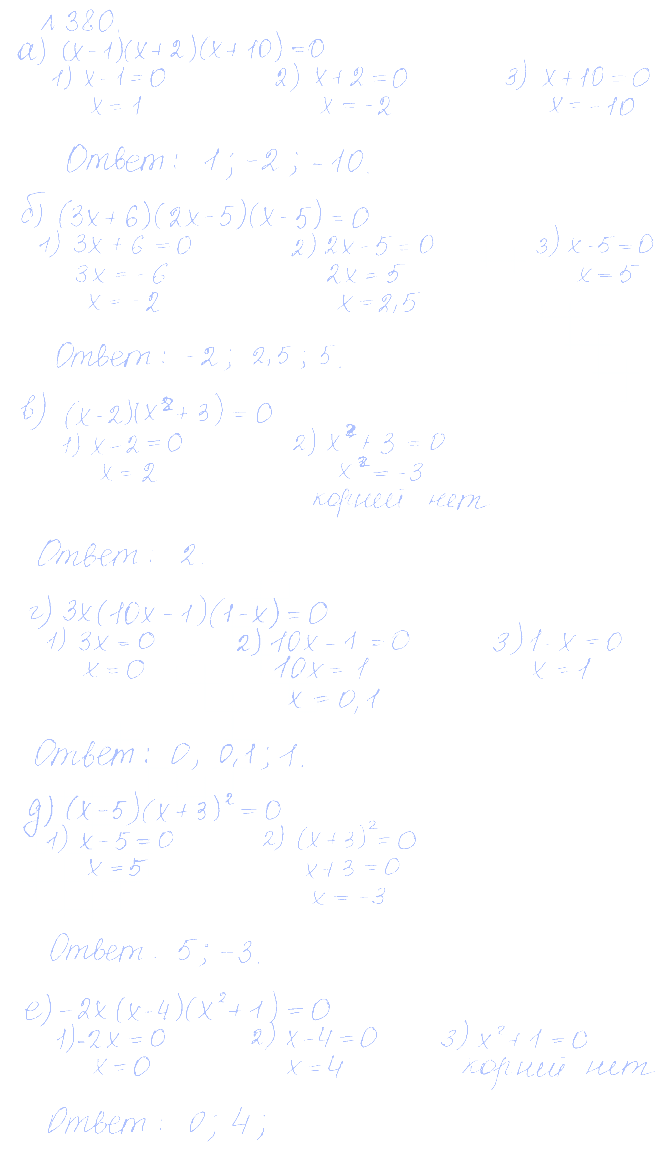 № 380.
а) (x-1)(x+2)(x+10)=0
1) x-1=0 2) x+2=0 3) x+10=0
x=1 x=-2 x=-10
Ответ: 1; -2; -10.
б) (3x+6)(2x-5)(x-5)=0
1) 3x+6=0 2) 2x-5=0 3) x-5=0
3x=-6 2x=5 x=5
x=-2 x=2,5
Ответ: -2; 2,5; 5.
в) (x-2)(x²+3)=0
1) x-2=0 2) x²+3=0
x=2 x²=-3
корней нет
Ответ. 2.
г) 3x(10x-1)(1-x)=0
1) 3x=0 2) 10x-1=0 3) 1-x=0
x=0 10x=1 x=1
x=0,1
Ответ: 0, 0,1; 1.
д) (x-5)(x+3)²=0
1) x-5=0 2) (x+3)²=0
x=5 x+3=0
x=-3
Ответ. 5; -3.
е) -2x(x-4)(x²+1)=0
1) -2x=0 2) x-4=0 3) x²+1=0
x=0 x=4 корней нет
Ответ: 0; 4;